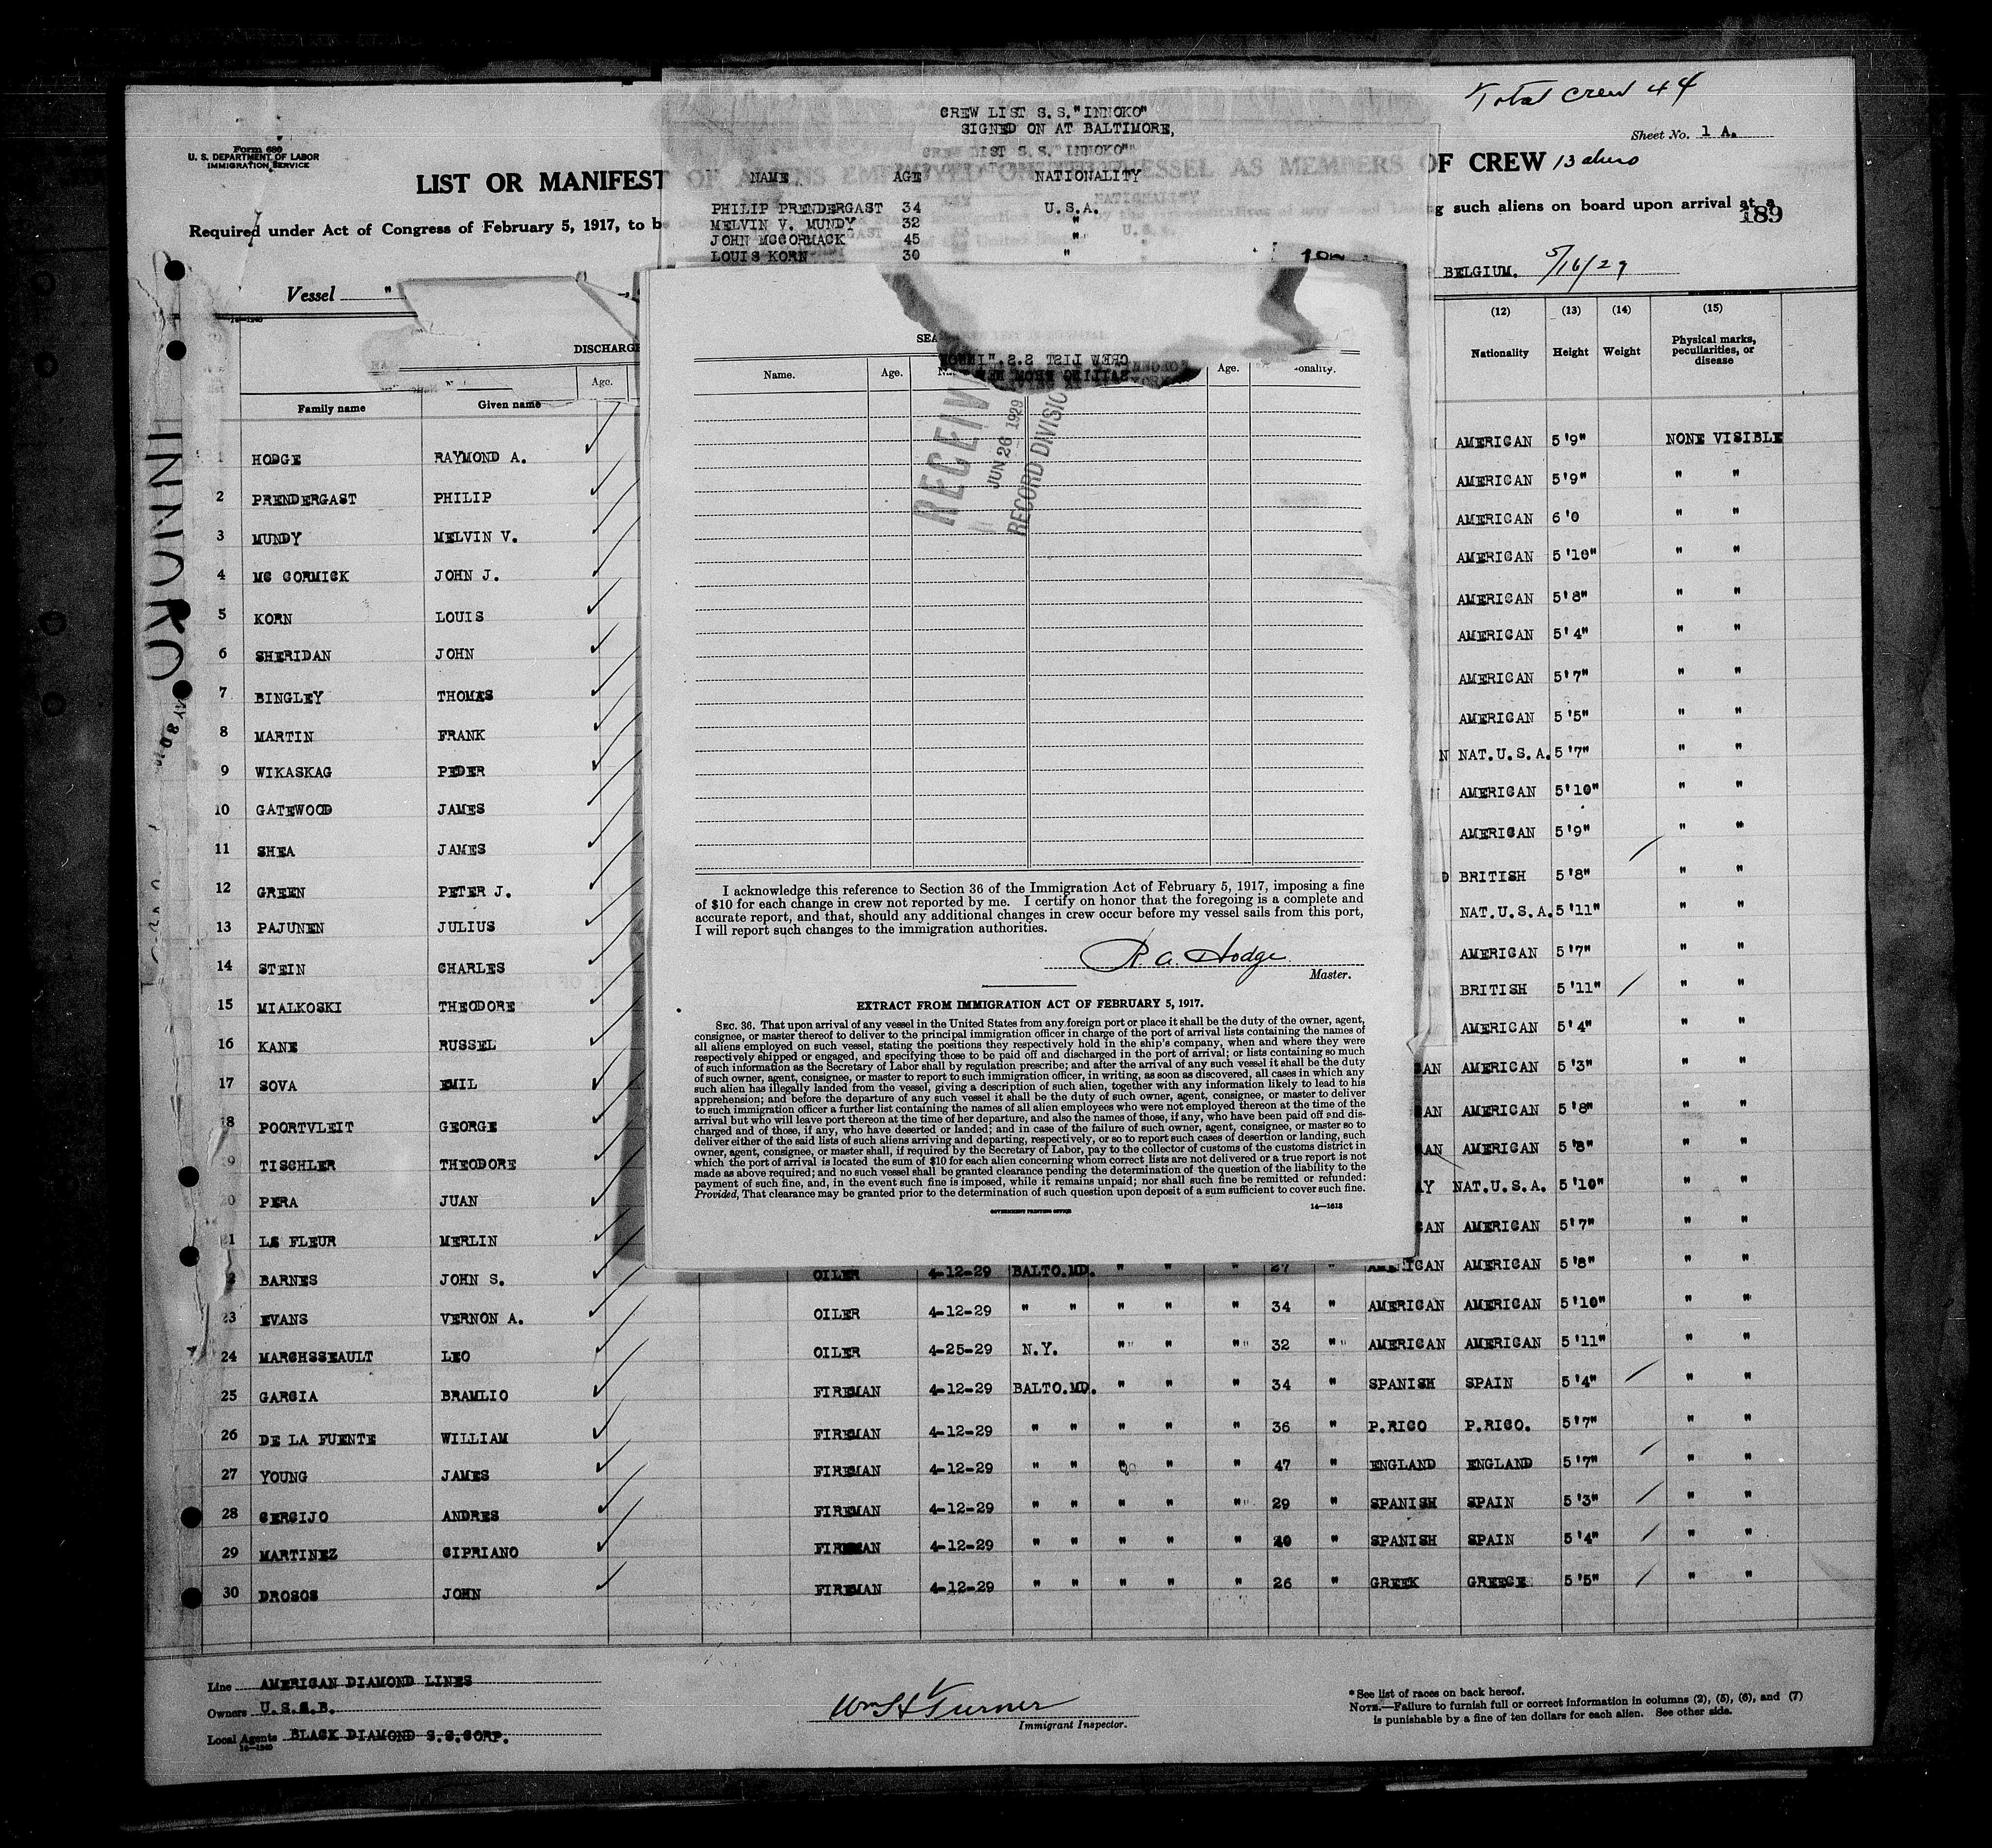 Total Crew 44
Sheet No. 1 A.
Form 680
U. S. DEPARTMENT OF LABOR
IMMIGRATION SERVICE
CREW LIST S.S."INNOKO"
SIGNED ON AT BALTIMORE,
NAME AGE NATIONALITY
PHILIP PRENDERGAST 34 U.S.A.
MELVIN V. MUNDY 32 "
JOHN MCCORMACK 45 "
LOUIS KORN 30 "
LIST OR MANIFEST OF ALIENS EMPLOYED ON THE VESSEL AS MEMBERS OF CREW 13
Required under Act of Congress of February 5, 1917, to b
g such aliens on board upon arrival at a
189
Vessel "
BELGIUM. 5/16/29
INNOKO
DISCHARGE
Age.
Family name Given name
(12) (13) (14) (15)
Nationality Height Weight Physical marks, peculiarities, or disease
SEA
CREW LIST S.S."INNOK
SAILING FROM NEW
Name. Age. Na Age. onality.
RECEIV
JUN 26 1929
RECORD DIVISIO
1 HODGE RAYMOND A. AMERICAN 5'9" NONE VISIBLE
2 PRENDERGAST PHILIP AMERICAN 5'9" " "
3 MUNDY MELVIN V. AMERICAN 6'0 " "
4 MC CORMICK JOHN J. AMERICAN 5'10" " "
5 KORN LOUIS AMERICAN 5'8" " "
6 SHERIDAN JOHN AMERICAN 5'4" " "
7 BINGLEY THOMAS AMERICAN 5'7" " "
8 MARTIN FRANK AMERICAN 5'5" " "
9 WIKASKAG PEDER N NAT.U.S.A. 5'7" " "
10 GATEWOOD JAMES AMERICAN 5'10" " "
11 SHEA JAMES AMERICAN 5'9" " "
12 GREEN PETER J. D BRITISH 5'8" " "
13 PAJUNEN JULIUS NAT.U.S.A. 5'11" " "
14 STEIN CHARLES AMERICAN 5'7" " "
15 MIALKOSKI THEODORE BRITISH 5'11" " "
16 KANE RUSSEL AMERICAN 5'4" " "
17 SOVA EMIL AN AMERICAN 5'3" " "
18 POORTVLEIT GEORGE AN AMERICAN 5'8" " "
19 TISCHLER THEODORE AN AMERICAN 5'8" " "
20 PERA JUAN Y NAT.U.S.A. 5'10" " "
21 LE FLEUR MERLIN AN AMERICAN 5'7" " "
22 BARNES JOHN S. OILER 4-12-29 BALTO.MD. " " " 27 " AMERICAN AMERICAN 5'8" " "
23 EVANS VERNON A. OILER 4-12-29 " " " " " 34 " AMERICAN AMERICAN 5'10" " "
24 MARCHSSEAULT LEO OILER 4-25-29 N.Y. " " " 32 " AMERICAN AMERICAN 5'11" " "
25 GARCIA BRAMLIO FIREMAN 4-12-29 BALTO.MD. " " " 34 " SPANISH SPAIN 5'4" " "
26 DE LA FUENTE WILLIAM FIREMAN 4-12-29 " " " " " 36 " P.RICO P.RICO. 5'7" " "
27 YOUNG JAMES FIREMAN 4-12-29 " " " " " 47 " ENGLAND ENGLAND 5'7" " "
28 CERCIJO ANDRES FIREMAN 4-12-29 " " " " " 29 " SPANISH SPAIN 5'3" " "
29 MARTINEZ CIPRIANO FIREMAN 4-12-29 " " " " " 40 " SPANISH SPAIN 5'4" " "
30 DROSOS JOHN FIREMAN 4-12-29 " " " " " 26 " GREEK GREECE 5'5" " "
I acknowledge this reference to Section 36 of the Immigration Act of February 5, 1917, imposing a fine
of $10 for each change in crew not reported by me. I certify on honor that the foregoing is a complete and
accurate report, and that, should any additional changes in crew occur before my vessel sails from this port,
I will report such changes to the immigration authorities.
R. A. Hodge
Master.
EXTRACT FROM IMMIGRATION ACT OF FEBRUARY 5, 1917.
SEC. 36. That upon arrival of any vessel in the United States from any foreign port or place it shall be the duty of the owner, agent,
consignee, or master thereof to deliver to the principal immigration officer in charge of the port of arrival lists containing the names of
all aliens employed on such vessel, stating the positions they respectively hold in the ship's company, when and where they were
respectively shipped or engaged, and specifying those to be paid off and discharged in the port of arrival; or lists containing so much
of such information as the Secretary of Labor shall by regulation prescribe; and after the arrival of any such vessel it shall be the duty
of such owner, agent, consignee, or master to report to such immigration officer, in writing, as soon as discovered, all cases in which any
such alien has illegally landed from the vessel, giving a description of such alien, together with any information likely to lead to his
apprehension; and before the departure of any such vessel it shall be the duty of such owner, agent, consignee, or master to deliver
to such immigration officer a further list containing the names of all alien employees who were not employed thereon at the time of the
arrival but who will leave port thereon at the time of her departure, and also the names of those, if any, who have been paid off and dis-
charged and of those, if any, who have deserted or landed; and in case of the failure of such owner, agent, consignee, or master so to
deliver either of the said lists of such aliens arriving and departing, respectively, or so to report such cases of desertion or landing, such
owner, agent, consignee, or master shall, if required by the Secretary of Labor, pay to the collector of customs of the customs district in
which the port of arrival is located the sum of $10 for each alien concerning whom correct lists are not delivered or a true report is not
made as above required; and no such vessel shall be granted clearance pending the determination of the question of the liability to the
payment of such fine, and, in the event such fine is imposed, while it remains unpaid; nor shall such fine be remitted or refunded:
Provided, That clearance may be granted prior to the determination of such question upon deposit of a sum sufficient to cover such fine.
GOVERNMENT PRINTING OFFICE 14—1613
Line AMERICAN DIAMOND LINES
Owners U.S.S.B.
Local Agents BLACK DIAMOND S.S.CORP.
14—1240
Wm H Turner
Immigrant Inspector.
* See list of races on back hereof.
NOTE.—Failure to furnish full or correct information in columns (2), (5), (6), and (7)
is punishable by a fine of ten dollars for each alien. See other side.